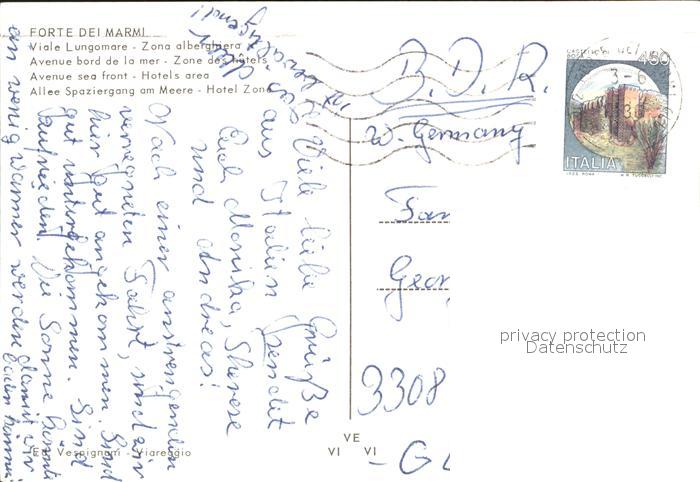 FORTE DEI MARMI
Viale Lungomare - Zona alberghiera
Avenue bord de la mer - Zone des hôtels
Avenue sea front - Hotels area
Allee Spaziergang am Meere - Hotel Zone
Viele liebe Grüße
aus Italien sendet
Euch Monika, Therese
und Andreas!
Nach einer anstrengenden
verregneten Fahrt, sind wir
hier gut angekommen. Sind
gut untergekommen. Sind
zufrieden. Die Sonne könnte
ein wenig wärmer werden damit wir
baden können.
B.D.R.
W. Germany
Fam
Geor
3308
- G
CASTELLO DI
450
3-6
ITALIA
Ed. Vespignani - Viareggio
VE
VI VI
privacy protection
Datenschutz